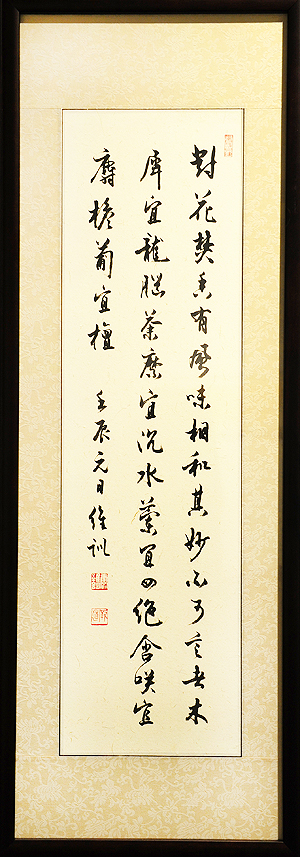 對花焚香有風味相和其妙不可言者木
犀宜龍腦荼縻宜沉水蘭宜四絕含咲宜
麝檐蔔宜檀 壬辰元日維訓